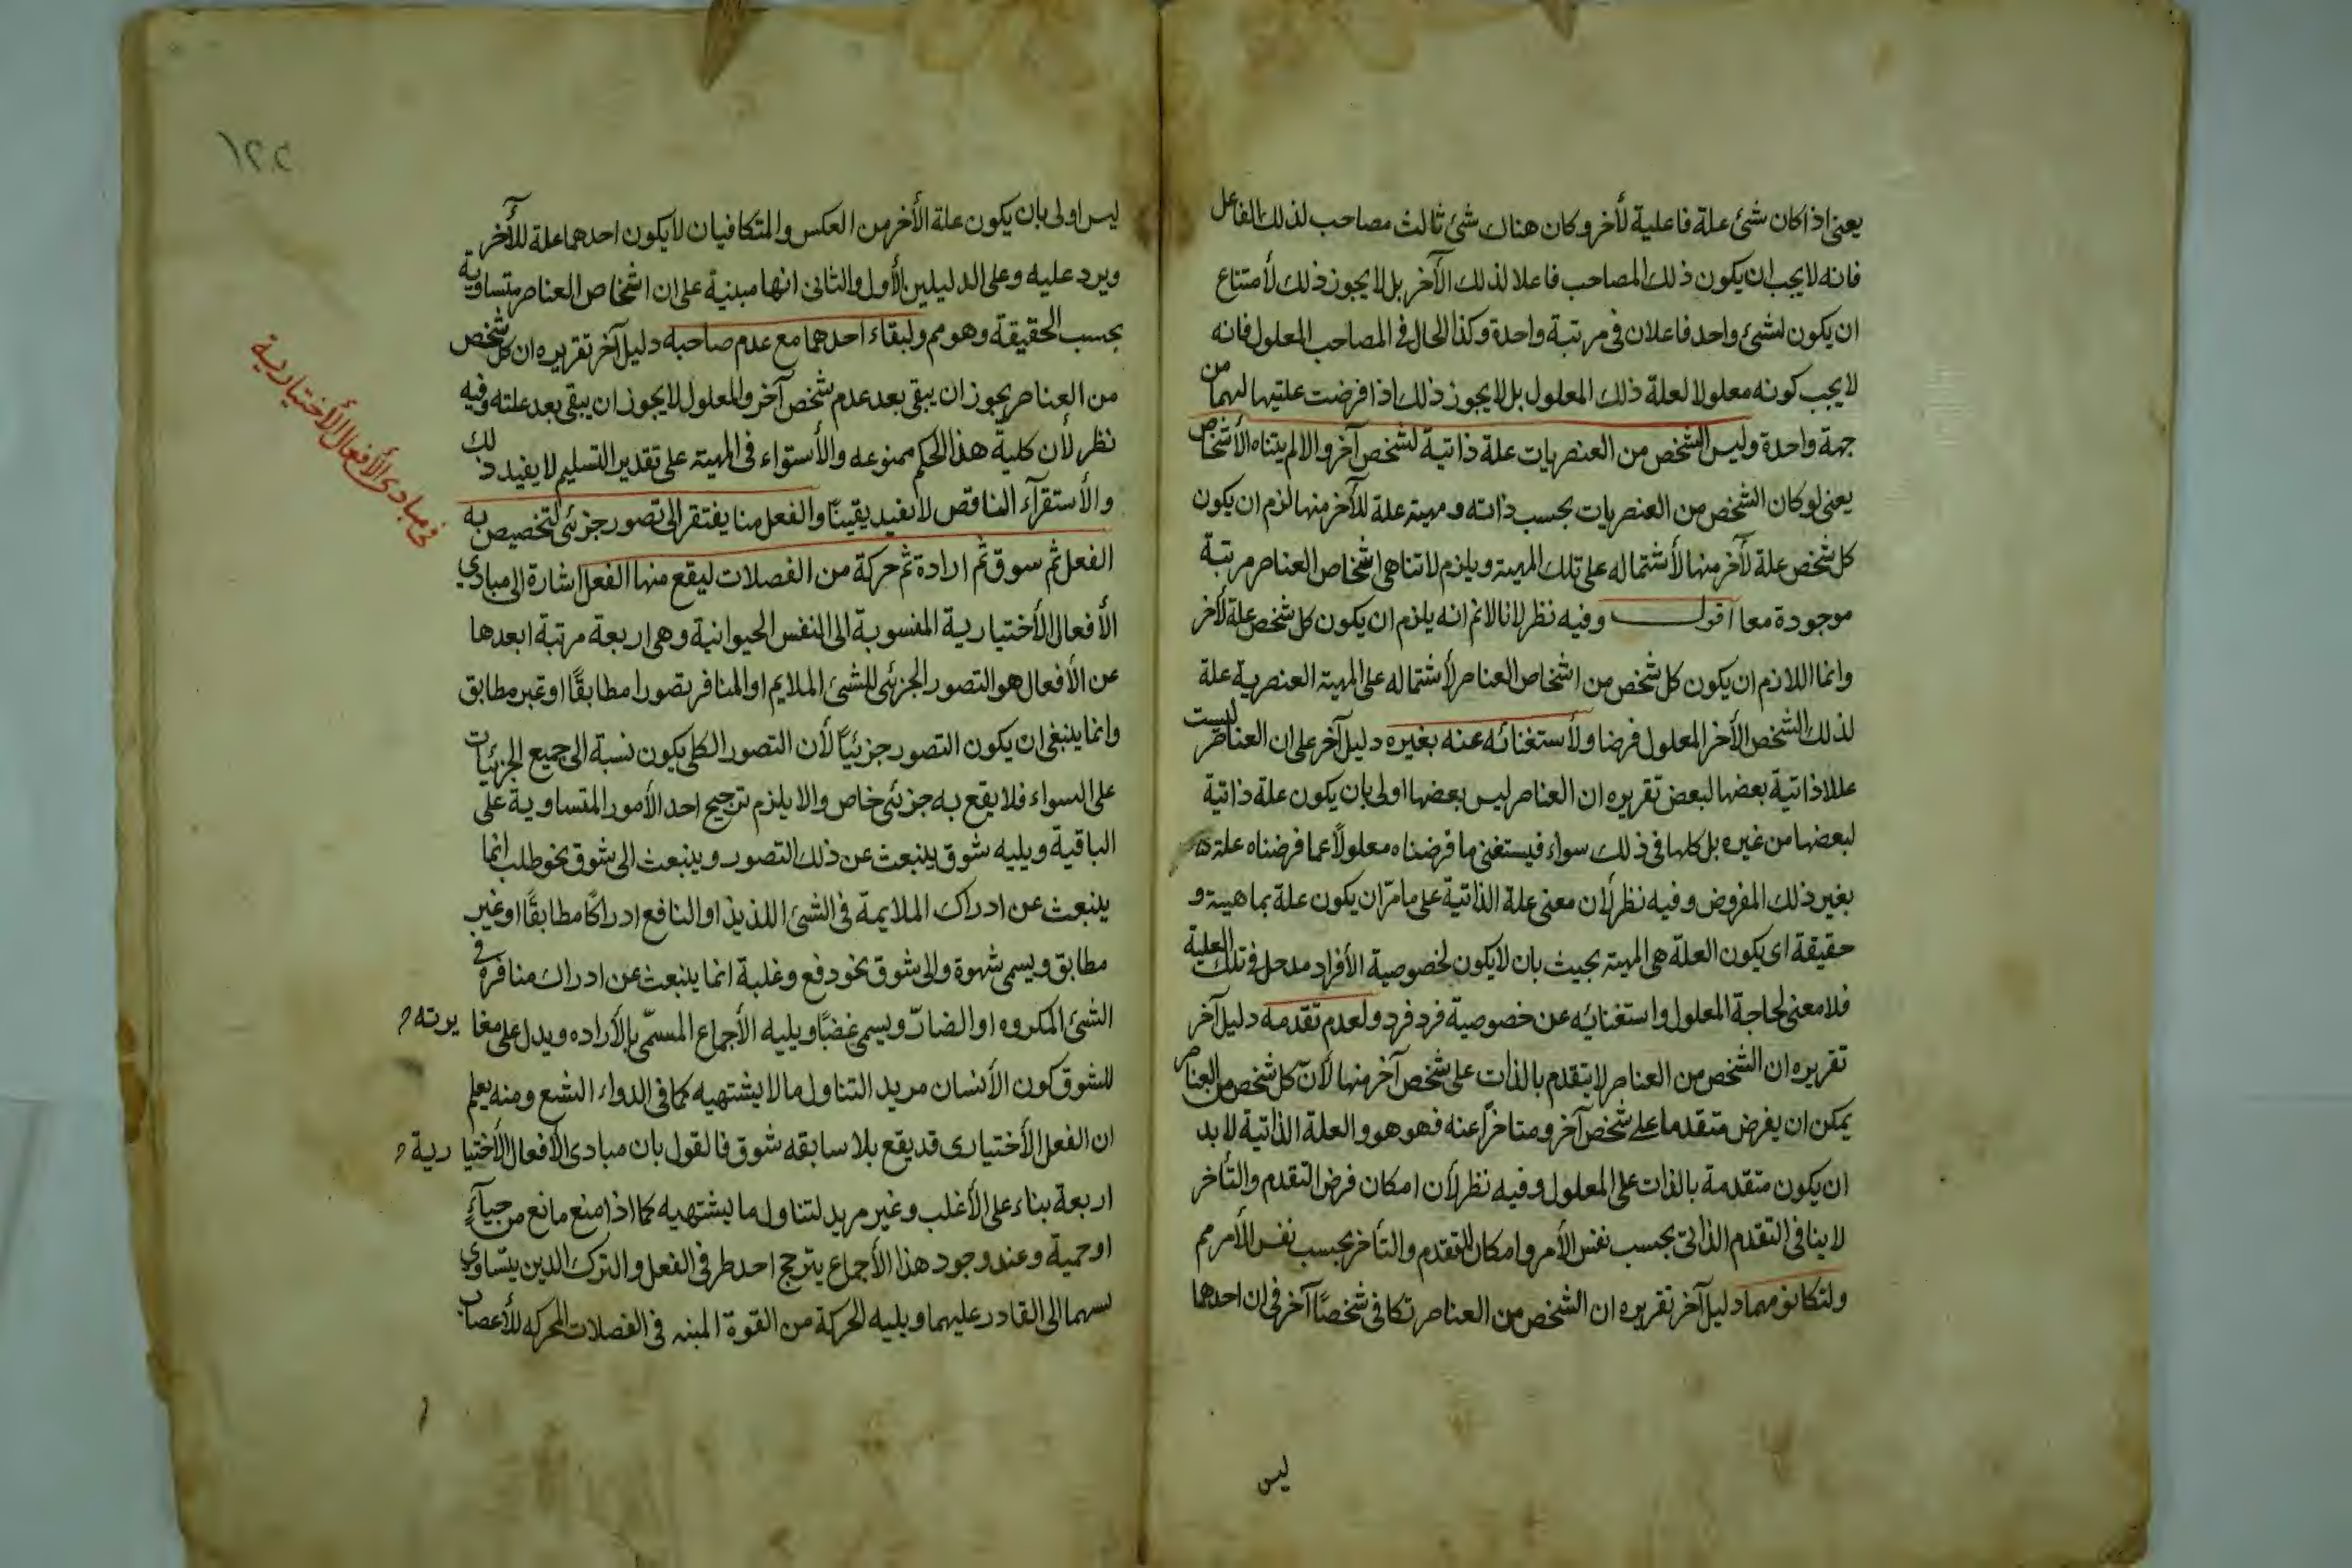 يعنى اذا كان شئ علة فاعلية لأخر وكان هناك شئ ثالث مصاحب لذلك الفاعل
فانه لا يجب ان يكون ذلك المصاحب فاعلا لذلك الآخر بل لا يجوز ذلك لأمتناع
ان يكون لشئ واحد فاعلان فى مرتبة واحدة وكذا الحال فى المصاحب المعلول فانه
لا يجب كونه معلولا لعلة ذلك المعلول بل لا يجوز ذلك اذا فرضت عليتها لهما من
جهة واحدة وليس الشخص من العنصريات علة ذاتية لشخص آخر والا لم يتناه الأشخاص
يعنى لو كان الشخص من العنصريات بحسب ذاته ومهيته علة للآخر منها لزم ان يكون
كل شخص علة لآخر منها لأشتماله على تلك المهية ويلزم لا تناهى اشخاص العناصر مرتبة
موجودة معا اقول وفيه نظر لانا لانم انه يلزم ان يكون كل شخص علة لأخر
وانما اللازم ان يكون كل شخص من اشخاص العناصر لأشتماله على المهية العنصرية علة
لذلك الشخص الأخر المعلول فرضا ولأستغنائه عنه بغيره دليل آخر على ان العناصر ليست
عللا ذاتية بعضها لبعض تقريره ان العناصر ليس بعضها اولى بان يكون علة ذاتية
لبعضها من غيره بل كلها فى ذلك سواء فيستغنى ما فرضناه معلولاً عما فرضناه علة
بغير ذلك المفروض وفيه نظر لأن معنى علة الذاتية على ما مرّ ان يكون علة بماهيته و
حقيقة اى يكون العلة هى المهية بحيث بان لا يكون لخصوصية الأفراد مدخل فى تلك العلية
فلا معنى لحاجة المعلول واستغنائه عن خصوصية فرد فرد ولعدم تقدمه دليل آخر
تقريره ان الشخص من العناصر لا يتقدم بالذات على شخص آخر منها لأنّ كل شخص من العناصر
يمكن ان يفرض متقدما على شخص آخر ومتاخراً عنه فهو هو والعلة الذاتية لا بد
ان يكون متقدمة بالذات على المعلول وفيه نظر لأن امكان فرض التقدم والتأخر
لا ينافى التقدم الذاتى بحسب نفس الأمر وامكان التقدم والتأخر بحسب نفس الأمر مم
ولتكافؤهما دليل آخر تقريره ان الشخص من العناصر تكافى شخصًا آخر فى ان احدهما
ليس
١٢٢
ليس اولى بان يكون علة الأخر من العكس والمتكافيان لا يكون احدهما علة للأخر
ويرد عليه وعلى الدليلين الأول والثانى انها مبنية على ان اشخاص العناصر متساوية
بحسب الحقيقة وهو مم ولبقاء احدهما مع عدم صاحبه دليل آخر تقريره ان كل شخص
من العناصر يجوز ان يبقى بعد عدم شخص آخر والمعلول لا يجوز ان يبقى بعد علته وفيه
نظر لأن كلية هذا الحكم ممنوعه والأستواء فى المهية على تقدير التسليم لا يفيد ذلك
والأستقرآء الناقص لا يفيد يقينًا والفعل منا يفتقر الى تصور جزئى لتخصيص به
الفعل ثم سوق ثم ارادة ثم حركة من الفصلات ليقع منها الفعل اشارة الى مبادى
الأفعال الأختيارية المنسوبة الى النفس الحيوانية وهى اربعة مرتبة ابعدها
عن الأفعال هو التصور الجزئى للشئ الملايم او المنافر تصورا مطابقًا او غير مطابق
وانما ينبغى ان يكون التصور جزئيًا لأن التصور الكلى يكون نسبة الى جميع الجزئيات
على السواء فلا يقع به جزئى خاص والا يلزم ترجيح احد الأمور المتساوية على
الباقية ويليه شوق ينبعث عن ذلك التصور وينبعث الى شوق نحو طلب انما
ينبعث عن ادراك الملايمة فى الشئ اللذيذ او النافع ادراكًا مطابقًا او غير
مطابق ويسمى شهوة والى شوق نحو دفع وغلبة انما ينبعث عن ادراك منافرة فى
الشئ المكروه او الضارّ ويسمى غضبًا ويليه الأجماع المسمّى بالأراده ويدل على مغايرته
للشوق كون الأنسان مريد التناول ما لا يشتهيه كما فى الدواء البشع ومنه يعلم
ان الفعل الأختيارى قد يقع بلا سابقه شوق فالقول بان مبادى الأفعال الأختيارية
اربعة بناء على الأغلب وغير مريد لتناول ما يشتهيه كما اذا منع مانع من حياءٍ
او حمية وعند وجود هذا الأجماع يترجح احد طرفى الفعل والترك الذين يتساوى
نسبهما الى القادر عليهما ويليه الحركة من القوة المبنه فى الفصلات المحركه للأعصاب
فى مبادى الأفعال الأختيارية